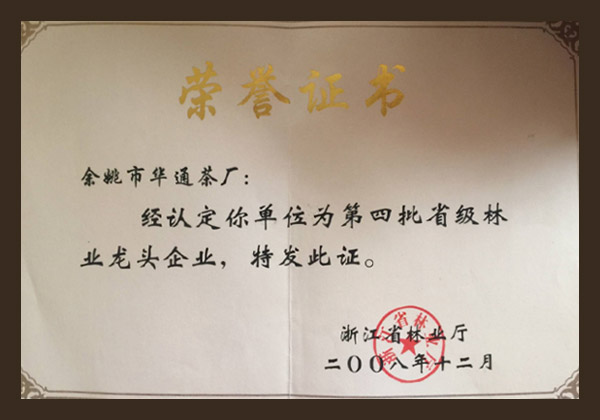 荣誉证书
余姚市华通茶厂：
经认定你单位为第四批省级林
业龙头企业，特发此证。
浙江省林业厅
二〇〇八年十二月
浙江省林业厅